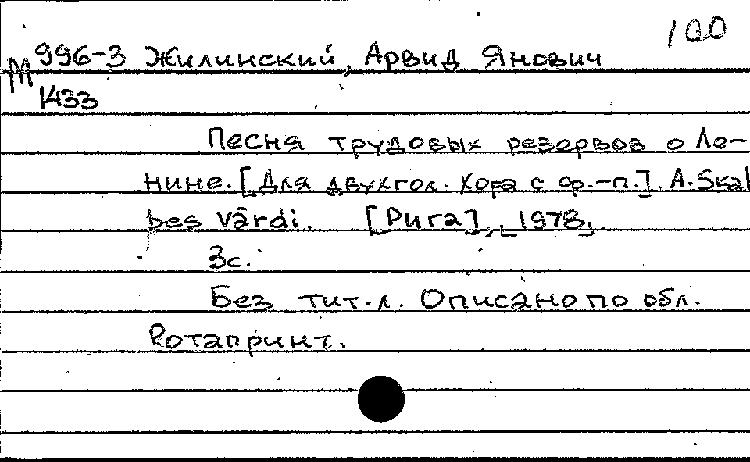 100
М 996-3 Жилинский, Арвид Янович
1433
Песня трудовых резервов о Ле-
нине. [Для двухгол. хора с ф.-п.]. A. Skal
bes vārdi. [Рига], [1978].
3с.
Без тит. л. Описано по обл.
Ротапринт.